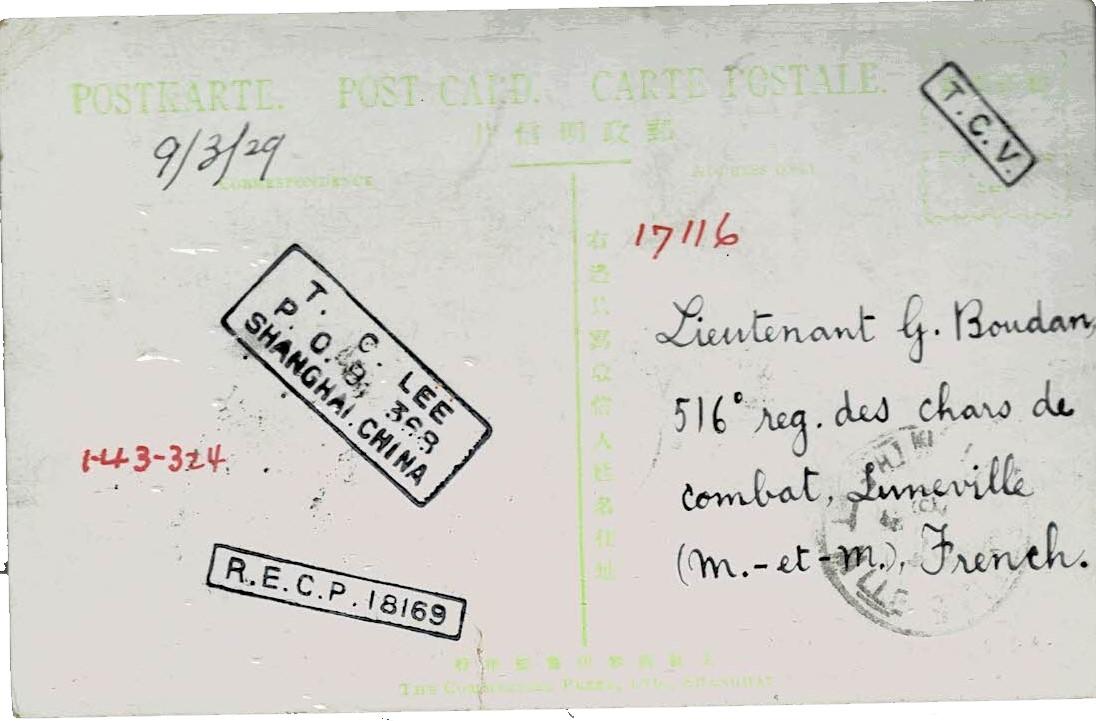 POSTKARTE. POST CARD. CARTE POSTALE.
片信明政郵
9/3/29
CORRESPONDENCE
ADDRESS ONLY
T.C.V.
右邊只寫收信人姓名住址
17116
T. C. LEE
P. O. B. 368
SHANGHAI. CHINA
Lieutenant G. Boudan,
516° reg. des chars de
combat, Luneville
(M.-et-M.), French.
143-324
R.E.C.P. 18169
THE COMMERCIAL PRESS, LTD., SHANGHAI